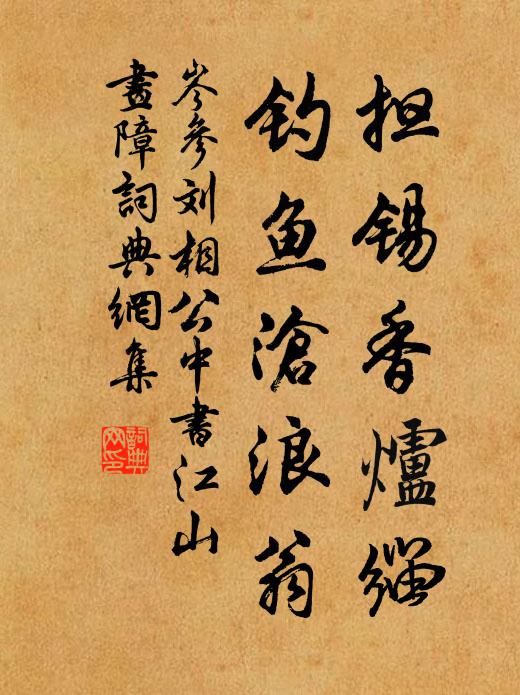 担锡香爐缁
钓鱼滄浪翁
岑參刘相公中書江山
畫障詞典網集
詞典网印